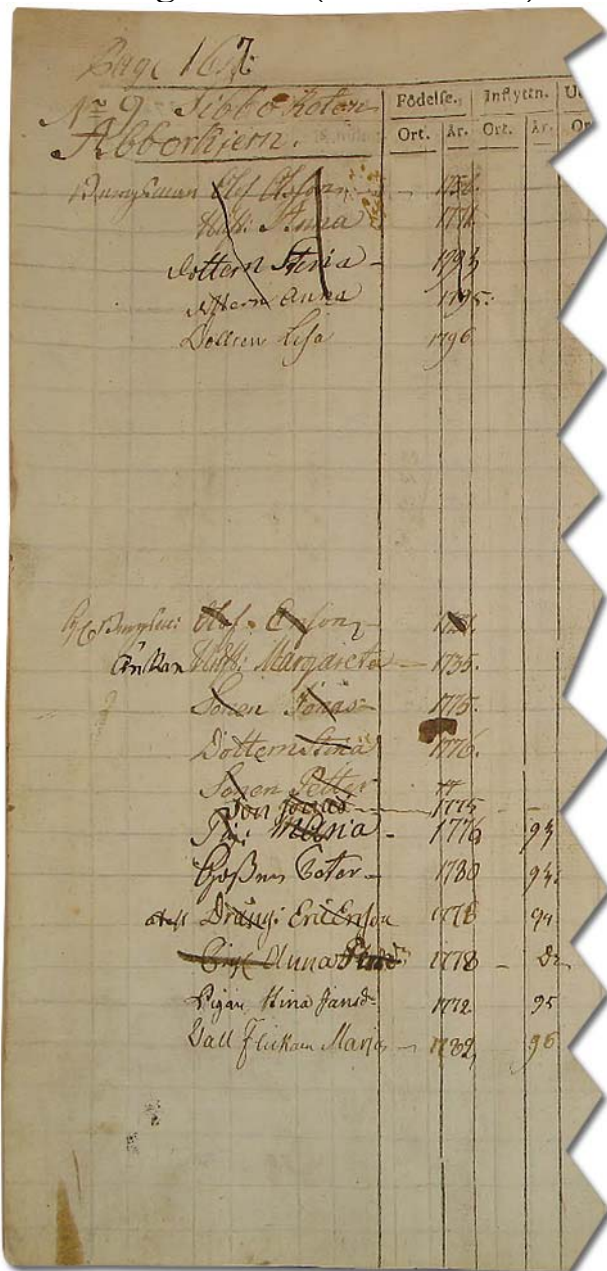 Page 167.
Nº 9. Sibbo Roten
Abborkjern.
Födelse. Inflyttn.
Ort. År. Ort. År.
Bergsman Olof Olsson 1756.
Hust: Anna 1771
Dottern Stina 1793
Dottern Anna 1795.
Dottern Lisa 1796
Olof
Enkan Hust: Margareta 1735.
Sonen Jonas 1775.
Dottern Stina 1776.
Sonen Petter
Son Jonas 1775
Pig: Maria 1776 94
Goßen Peter 1780 94.
Dräng: Eric Ersson 1778 94
Anna 1778
Pigan Stina Jansd: 1772 95
Vall Flickan Maria 1782, 96